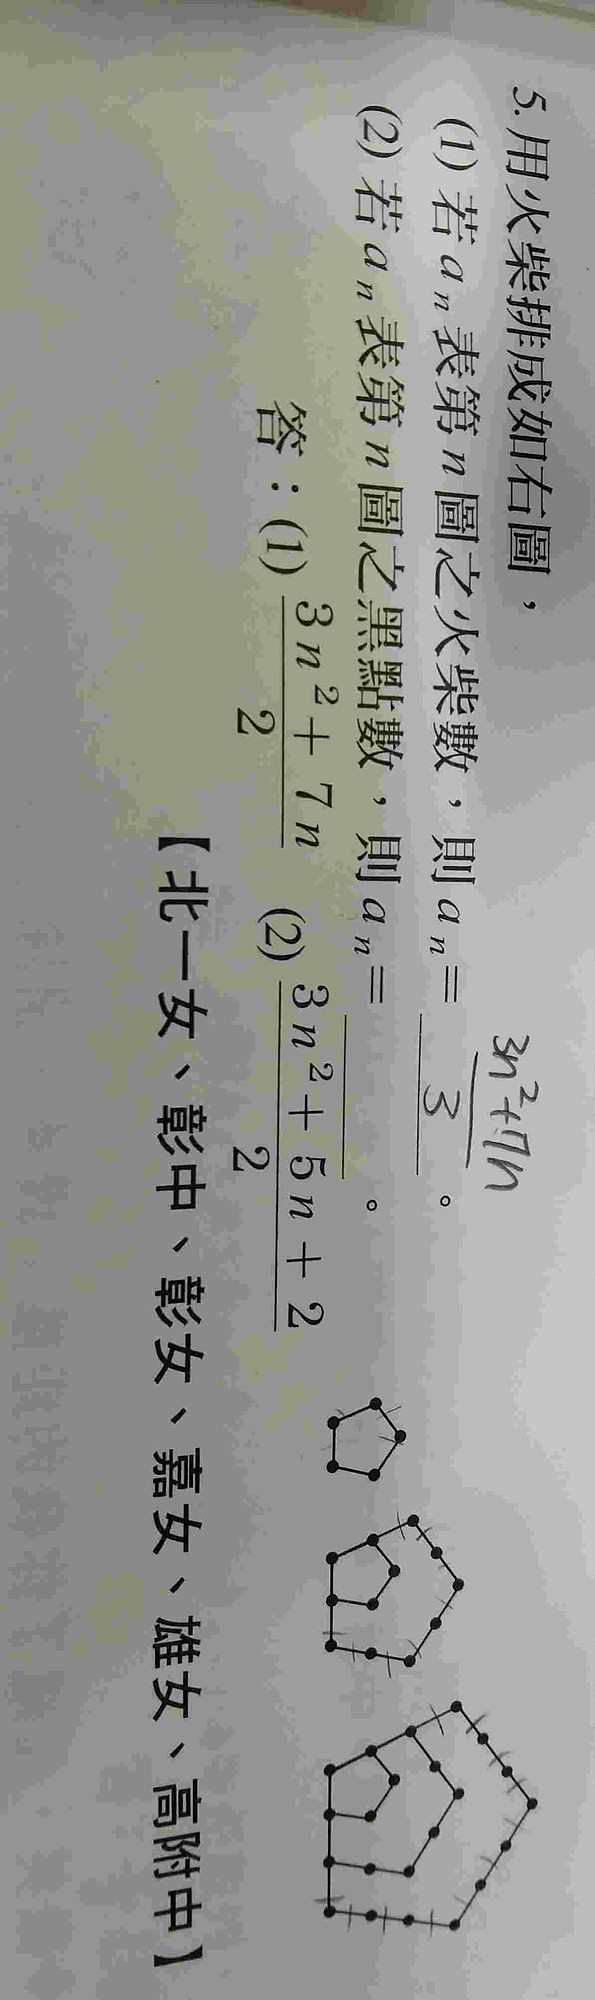 5. 用火柴排成如右圖，
(1) 若 aₙ 表第 n 圖之火柴數，則 aₙ = 3n²+7n / 3 。
(2) 若 aₙ 表第 n 圖之黑點數，則 aₙ = ______ 。
答：(1) 3n²+7n / 2 (2) 3n²+5n+2 / 2
【北一女、彰中、彰女、嘉女、雄女、高附中】